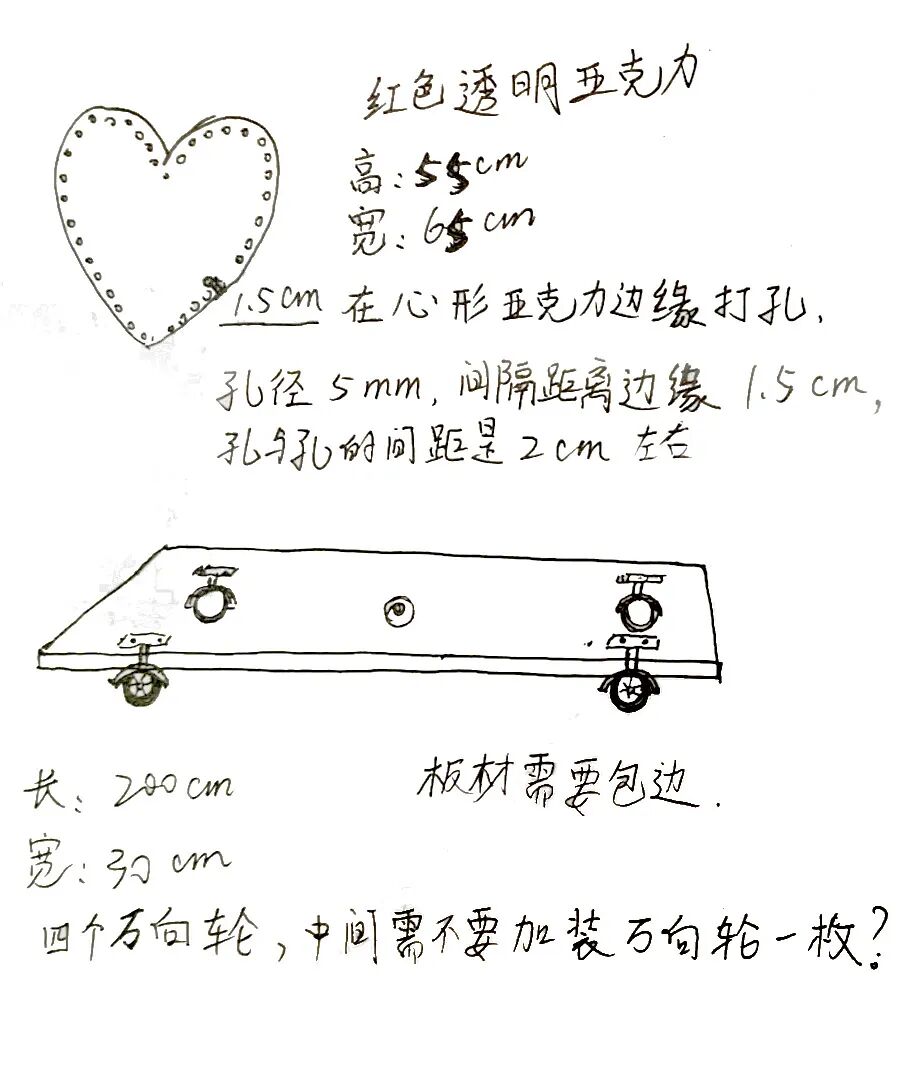 红色透明亚克力
高:55cm
宽:65cm
1.5cm 在心形亚克力边缘打孔.
孔径5mm,间隔距离边缘1.5cm,
孔与孔的间距是2cm左右
长:200cm
板材需要包边.
宽:30cm
四个万向轮,中间需不要加装万向轮一枚?